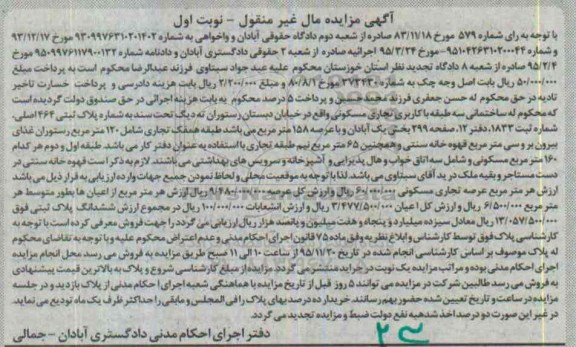 آگهی مزایده مال غیر منقول - نوبت اول
با توجه به رای شماره ۵۷۹ مورخ ۸۳/۱۱/۱۸ صادره از شعبه دوم دادگاه حقوقی آبادان و واخواهی به شماره ۹۳۰۹۹۷۶۳۱۰۲۰۱۴۰۲ مورخ ۹۳/۱۲/۱۷
و شماره ۹۵۱۰۴۲۶۳۱۰۲۰۰۰۴۴ - مورخ ۹۵/۳/۲۴ اجرائیه صادره از شعبه ۲ حقوقی دادگستری آبادان و دادنامه شماره ۹۵۰۹۹۷۶۱۱۷۹۰۰۱۳۲ مورخ
۹۵/۲/۴ صادره از شعبه ۸ دادگاه تجدید نظر استان خوزستان محکوم علیه عبد جواد سیتاوی فرزند عبدالرضا محکوم است به پرداخت مبلغ
۵۰/۰۰۰/۰۰۰ ریال بابت اصل وجه چک به شماره ۳۷۳۴۳۰ مورخ ۸۰/۸/۱ و مبلغ ۲/۲۰۰/۰۰۰ ریال بابت هزینه دادرسی و پرداخت خسارت تاخیر
تادیه در حق محکوم له حسن جعفری فرزند حسین و پرداخت ۵ درصد محکوم به بابت هزینه اجرائی در حق صندوق دولت گردیده است
که محکوم له ساختمانی سه طبقه با کاربری تجاری مسکونی واقع در خیابان دبستان رستوران ته دیگ تحت سند به شماره پلاک ثبتی ۴۶۴ اصلی،
شماره ثبت ۱۸۳۳، دفتر ۱۲، صفحه ۲۹۹ بخش یک آبادان و با عرصه ۱۵۸ متر مربع می باشد طبقه همکف تجاری شامل ۱۲۰ متر مربع رستوران غذای
بیرون بر و سی متر مربع قهوه خانه سنتی و همچنین ۶۵ متر مربع نیم طبقه تجاری با استفاده به عنوان دفتر کار می باشد. طبقه اول و دوم هر کدام
۱۶۰ متر مربع مسکونی و شامل سه اتاق خواب و هال پذیرایی و آشپزخانه و سرویس های بهداشتی می باشند. لازم به ذکر است قهوه خانه سنتی در
دست مستاجر و بقیه ملک در ید آقای سیتاوی می باشد. لذا با توجه به موقعیت محلی و لحاظ نمودن جمیع جهات وارده ارزیابی به قرار ذیل می باشد
ارزش هر متر مربع عرصه تجاری مسکونی ۶۰/۰۰۰/۰۰۰ ریال و ارزش کل عرصه ۹/۴۸۰/۰۰۰/۰۰۰ ریال ارزش هر متر مربع از اعیان ها بطور متوسط هر
متر مربع ۶/۵۰۰/۰۰۰ ریال و ارزش کل اعیان ۳/۴۷۷/۵۰۰/۰۰۰ ریال و ارزش انشعابات ۱۰۰/۰۰۰/۰۰۰ ریال در مجموع ارزش ششدانگ پلاک ثبتی فوق
۱۳/۰۵۷/۵۰۰/۰۰۰ ریال معادل سیزده میلیارد و پنجاه و هفت میلیون و پانصد هزار ریال ارزیابی می گردد را جهت فروش معرفی کرده است با توجه به
کارشناسی پلاک فوق توسط کارشناس و ابلاغ نظریه وفق ماده ۷۵ قانون اجرای احکام مدنی و عدم اعتراض محکوم علیه و با توجه به تقاضای محکوم
له پلاک موصوف بر اساس کارشناسی انجام شده در تاریخ ۹۵/۱۱/۳۰ از ساعت ۱۰ الی ۱۱ صبح طریق مزایده به فروش می رسد محل انجام مزایده
اجرای احکام مدنی بوده و مراتب مزایده یک نوبت در جراید منتشر می گردد مزایده از مبلغ کارشناسی شروع و پلاک به بالاترین قیمت پیشنهادی
به فروش می رسد طالبین شرکت در مزایده می توانند ۵ روز قبل از تاریخ مزایده با هماهنگی شعبه اجرای احکام مدنی از پلاک بازدید و در جلسه
مزایده در ساعت و تاریخ تعیین شده حضور بهم رسانند. خریدار ده درصد بهای پلاک را فی المجلس و مابقی را حداکثر ظرف یک ماه تودیع می نماید.
در غیر این صورت دو درصد اخذ شده به نفع دولت ضبط و مزایده تجدید می گردد.
دفتر اجرای احکام مدنی دادگستری آبادان - جمالی